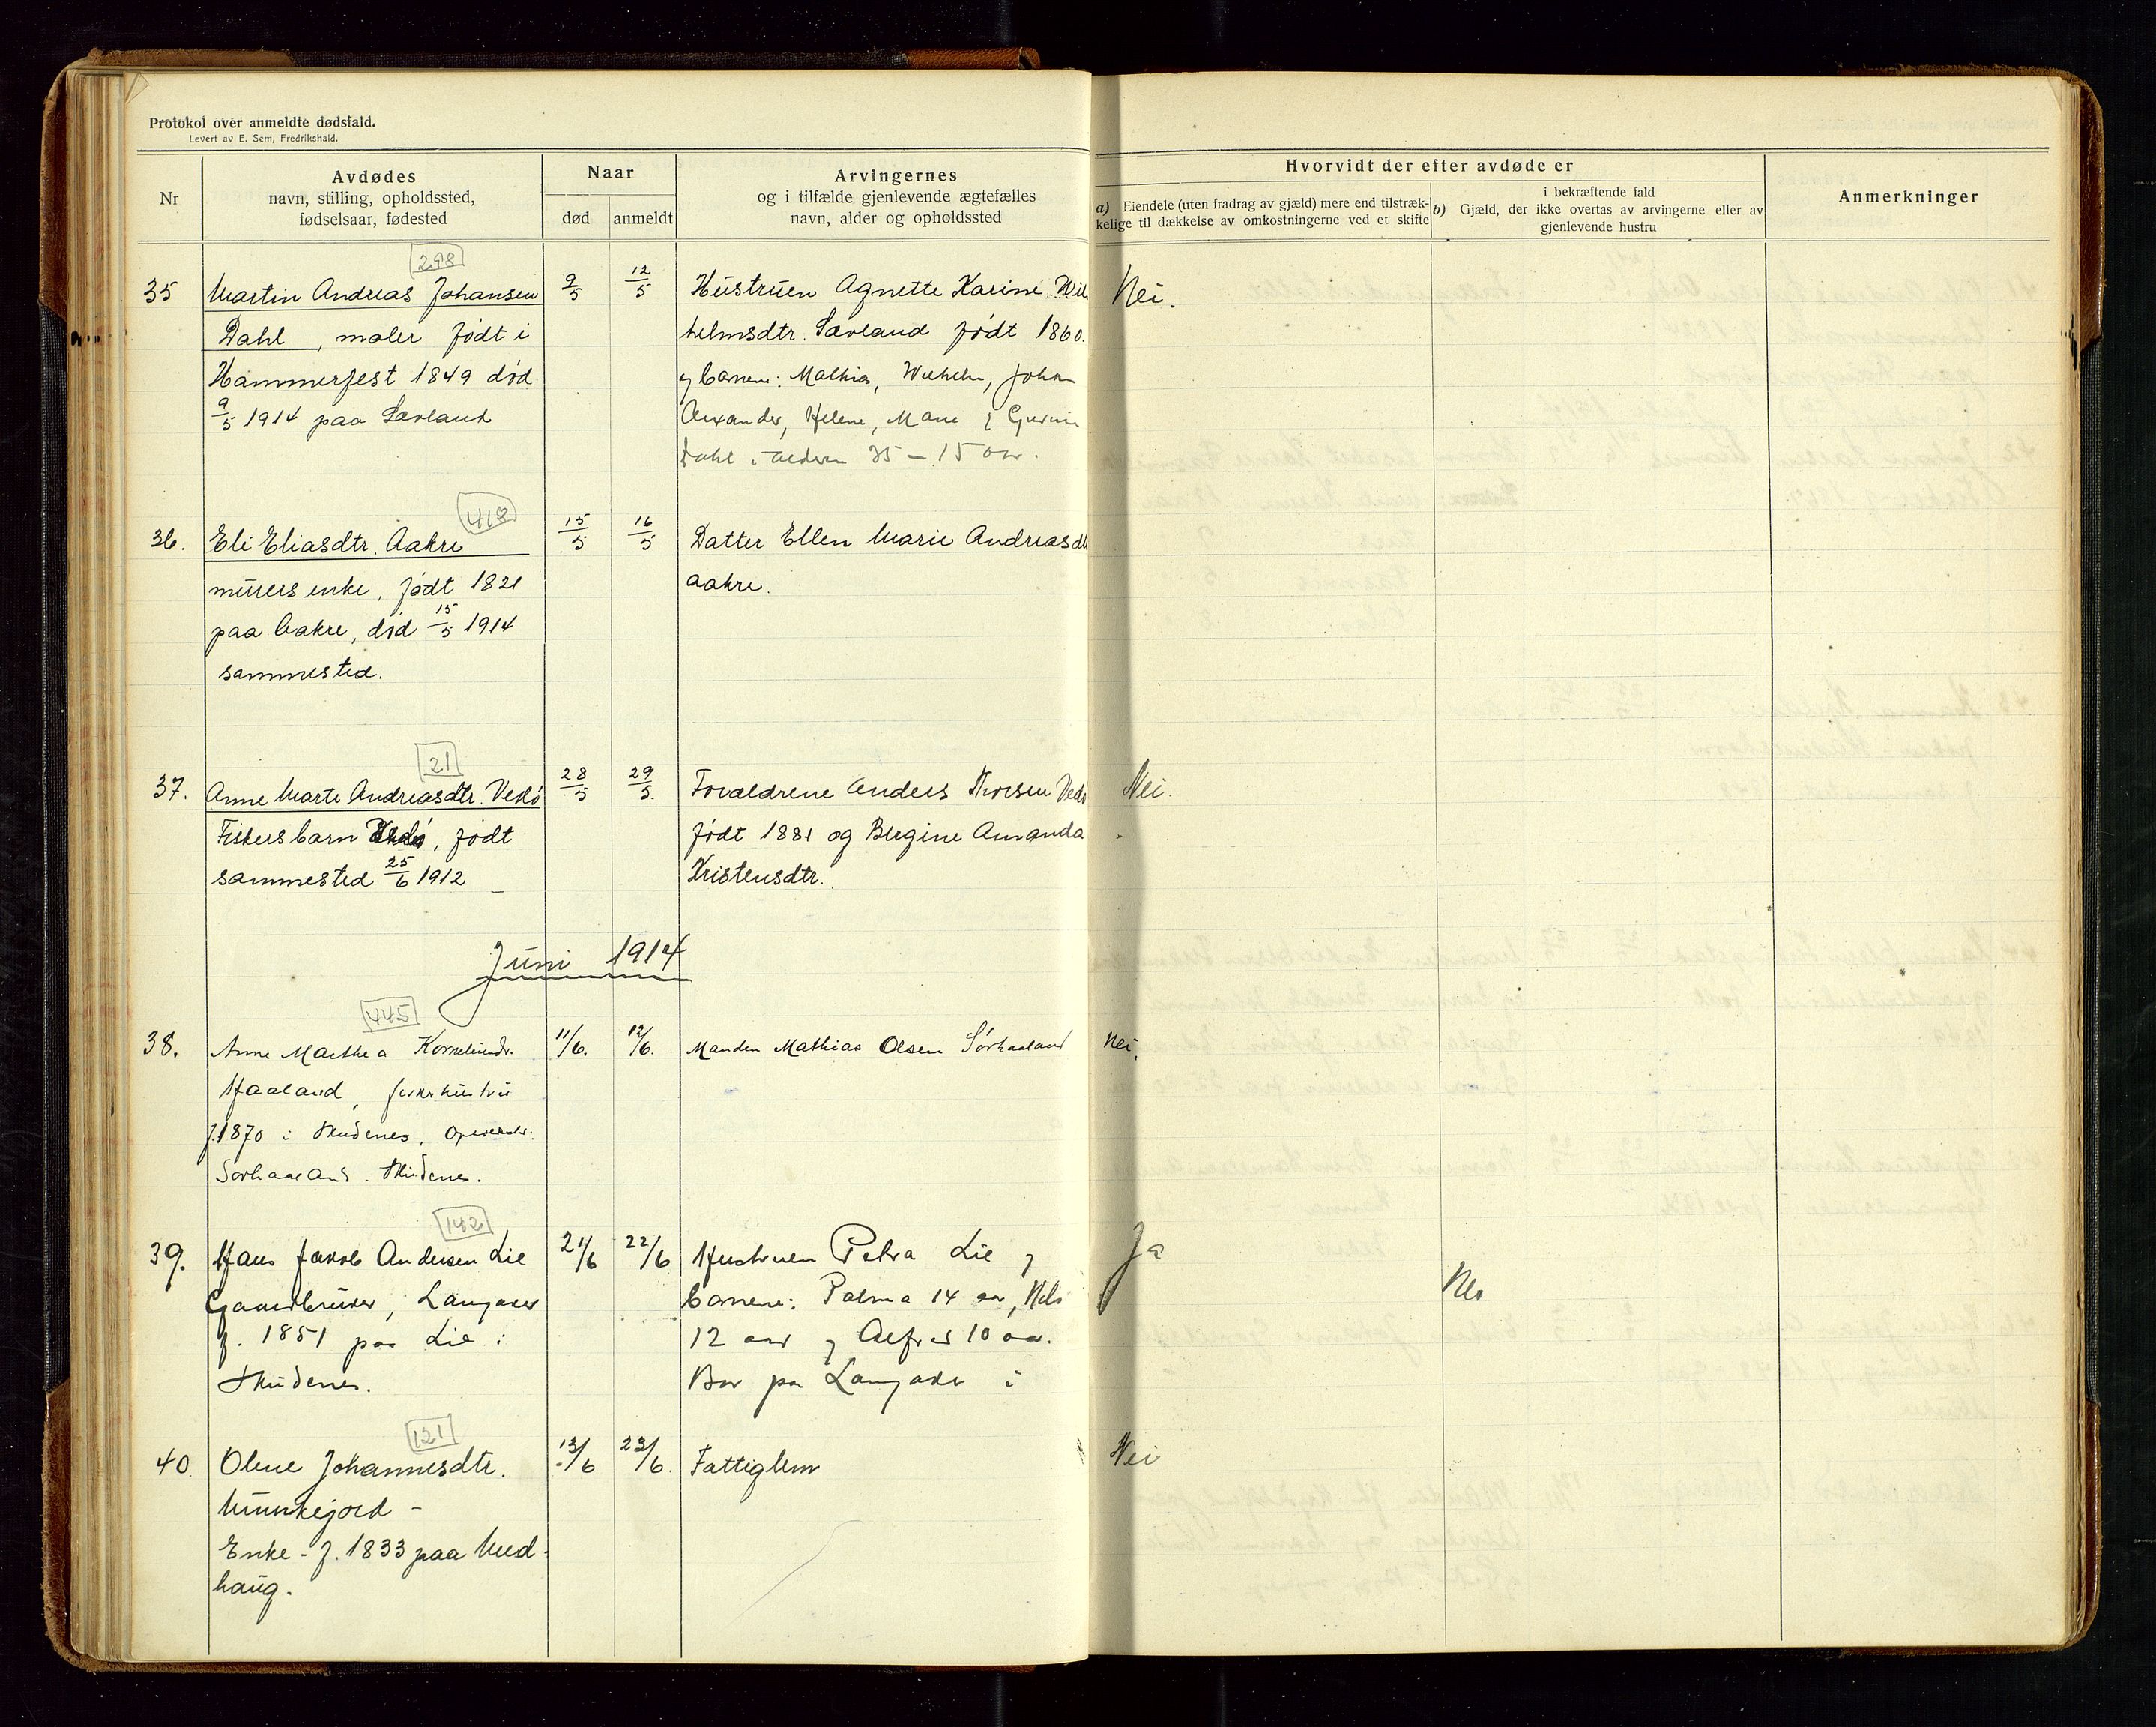 Protokol over anmeldte dødsfald.
Levert av E. Sem, Fredrikshald.
Nr
Avdødes
navn, stilling, opholdssted,
fødselsaar, fødested
Naar
død
anmeldt
Arvingernes
og i tilfælde gjenlevende ægtefælles
navn, alder og opholdssted
Hvorvidt der efter avdøde er
a) Eiendele (uten fradrag av gjæld) mere end tilstræk-
kelige til dækkelse av omkostningerne ved et skifte
i bekræftende fald
b) Gjæld, der ikke overtas av arvingerne eller av
gjenlevende hustru
Anmerkninger
298
35 Martin Andreas Johansen
Dahl, maler født i
Hammerfest 1849 død
9/5 1914 paa Sævland
9/5
12/5
Hustruen Agnette Karine Wil
helmsdtr. Sævland født 1860.
og børnene: Mathias, Wilhelm, Johan
Alexander, Helene, Marie &
Dahl i alderen 35 – 15 aar.
Nei.
418
36. Eli Eliasdtr. Aakre
murers enke, født 1821
paa Aakre, død 15/5 1914
sammested.
15/5
16/5
Datter Ellen Marie Andreasdtr
Aakre.
21
37. Anne Marte Andreasdtr. Vedø
Fiskersbarn Vedø, født
sammested 25/6 1912
28/5
29/5.
Forældrene Anders Thorsen Vedø
født 1881 og Bergine Amanda
Kristensdtr.
Nei.
Juni 1914
445
38. Anne Marthea Korneliusdr.
Haaland, fiskerhustru
f. 1870 i Skudenes,
Sørhaaland. Skudenes.
11/6.
12/6.
Manden Mathias Olsen Sørhaaland
Nei.
142
39. Hans Jakob Andersen Lie
Gaardbruker, Langaker
f. 1851 paa Lie i
Skudenes.
21/6
22/6
Hustruen Petra Lie og
børnene: Palma 14 aar, Nels
12 aar og Alfred 10 aar.
Bor paa Langaker i
Ja
Nei
121
40. Olene Johannesdtr.
Munkejord –
Enke – f. 1833 paa Med-
haug.
13/6
23/6.
Fattiglem
Nei